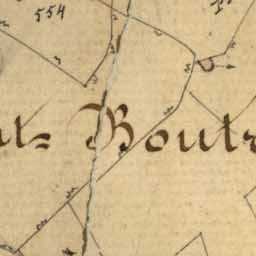 554
ut= Boutr